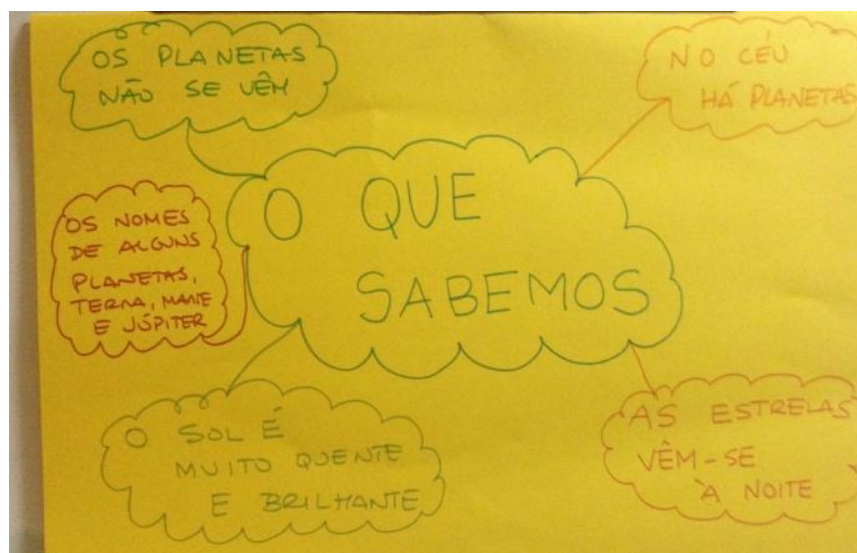 OS PLANETAS
NÃO SE VÊM
NO CÉU
HÁ PLANETAS
O QUE
SABEMOS
OS NOMES
DE ALGUNS
PLANETAS,
TERRA, MARTE
E JÚPITER
O SOL É
MUITO QUENTE
E BRILHANTE
AS ESTRELAS
VÊM-SE
À NOITE